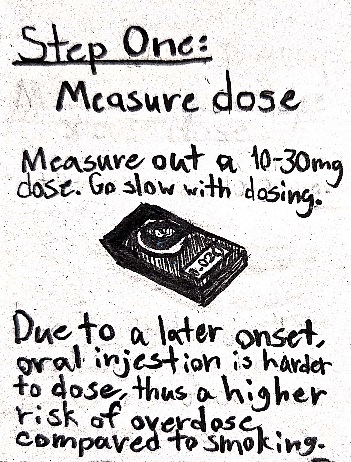 Step One:
Measure dose
Measure out a 10-30mg
dose. Go slow with dosing.
0.020
Due to a later onset,
oral injestion is harder
to dose, thus a higher
risk of overdose
compared to smoking.